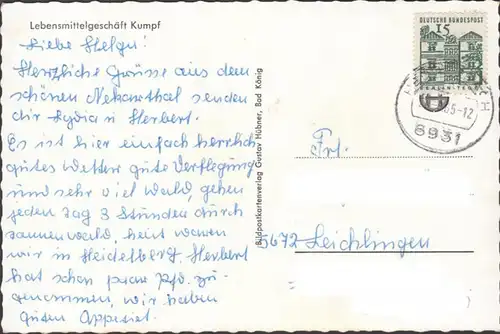 Lebensmittelgeschäft Kumpf
Liebe Helga!
Herzliche Grüsse aus dem
schönen Nekarthal senden
dir Lydia u Herbert.
Es ist hier einfach herrlich
gutes Wetter gute Verflegung
und sehr viel Wald, gehen
jeden Tag 3 Stunden durch
Tannenwald, heut waren
wir in Heidelberg. Herbert
hat schon paar Pfd. zu-
genommen, wir haben
guten Appetiet.
Bildpostkartenverlag Gustav Hübner, Bad König
DEUTSCHE BUNDESPOST
15
65-12
6931
Frl.
5672 Leichlingen